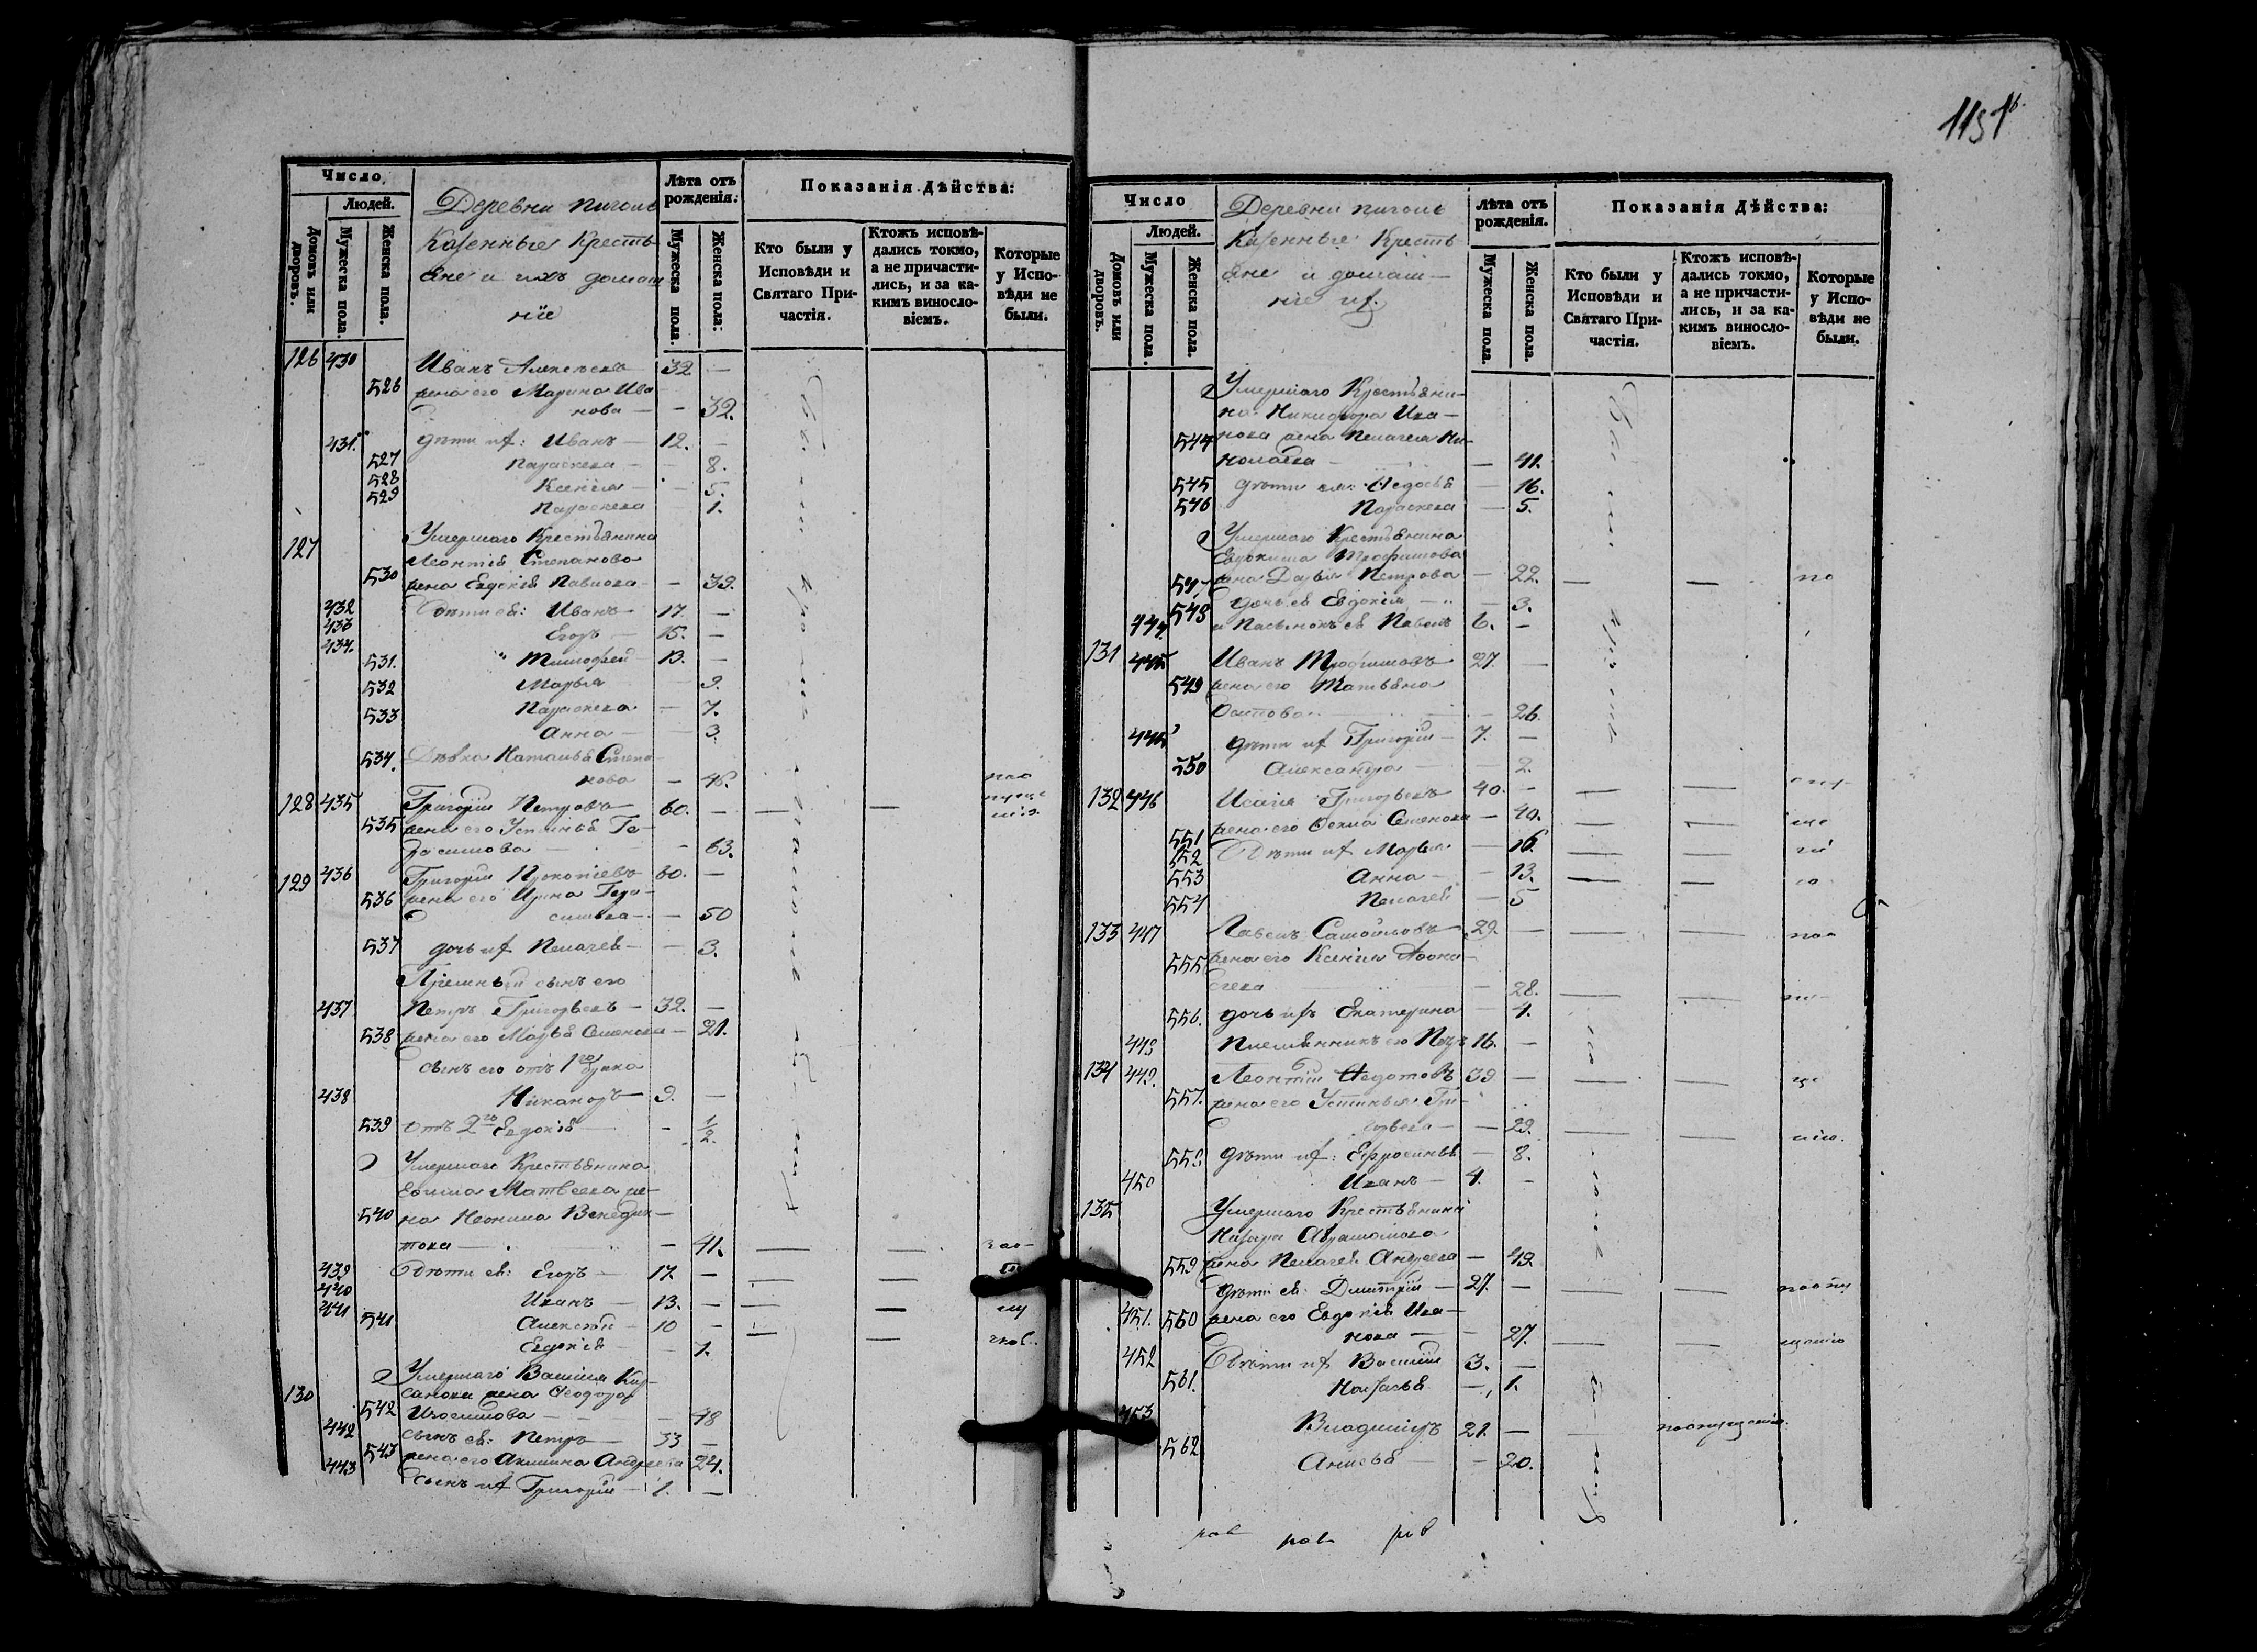 1151
Число
Людей.
Домовъ или дворовъ.
Мужеска пола.
Женска пола.
Деревни
Казенные Кресть-
яне и ихъ домаш
ніе
Лѣта отъ рожденія.
Мужеска пола.
Женска пола:
Показанія Дѣйства:
Кто были у Исповѣди и Святаго Причастія.
Ктожъ исповѣдались токмо, а не причастились, и за какимъ винословіемъ.
Которые у Исповѣди не были.
126 430 Иванъ Алексѣевъ 32 —
526 жена его Марина Ива
нова — — 32.
431. дѣти их: Иванъ — 12. —
527 Параскева — — 8.
528 Ксенія — — 5.
529 Параскева 1.
127 Умершаго Крестьянина
Леонтія Степанова
530 жена Евдокія Павлова — — 39.
432 Дѣти ея: Иванъ 17. —
433 Егоръ — 15. —
434. Тимофей 13. —
531. Марья 9.
532 Параскева — 7.
533 Анна — — 3.
534. Дѣвка Наталья Степа
нова —
128 435 Григорій Петровъ 60. —
535 жена его Устинья Ге-
расимова — — 63.
129 436 Григорій Прокопіевъ 60. —
536 жена его Ирина Гера-
симова — — 50
537 дочь их Пелагея — — 3.
Пріемный сынъ его
437 Петръ Григорьевъ — 32. —
538 жена его Марья Семенова — 21.
сынъ его отъ 1го брака
438 Никаноръ — 9. —
539 Отъ 2го Евдокія — - 1/2.
Умершаго Крестьянина
Матвеева же-
540 на Неонила Венедик-
това — — 41. — —
439 Дѣти ея: Егоръ — 17. — — —
440 Иванъ — 13. — — —
441 541 Алексѣй — 10 — — —
Евдокія — 1.
130 Умершаго Василія Кир-
санова жена Феодора
542 Изосимова — 48
442 сынъ ея: Петръ — 33 —
543 жена его Акилина Андреева 24.
443 сынъ их Григорій — 1. —
Число
Людей.
Домовъ или дворовъ.
Мужеска пола.
Женска пола.
Деревни
Казенные Кресть
яне и домаш-
ніе их.
Лѣта отъ рожденія.
Мужеска пола.
Женска пола.
Показанія Дѣйства:
Кто были у Исповѣди и Святаго Причастія.
Ктожъ исповѣдались токмо, а не причастились, и за какимъ винословіемъ.
Которые у Исповѣди не были.
Умершаго Крестьяни-
на Никифора Ива-
544 нова жена Пелагея Ни-
колаева — — 41.
545 дѣти ея: Федосья — 16.
546 Параскева — 5.
Умершаго Крестьянина
Евдокима Трофимова
жена Дарья Петрова — 22. — —
548 дочь ея Евдокія — — 3.
444. и Пасынокъ ея Павелъ 6. —
131 445 Иванъ Трофимовъ 27. —
549 жена его Татьяна
Осипова — 26.
445 дѣти их Григорій — 7. —
550 Александра — — 2.
132 446 Исаія Григорьевъ 40. — — —
551 жена его Фекла Семенова — 40. — —
552 Дѣти их Марья — 16. — —
553 Анна — — 13. — —
554 Пелагея — 5
133 447 Павелъ Самойловъ 29. — — —
555 жена его Ксенія Афона-
сьева — 28. — —
556. дочь ихъ Екатерина — 4.
448 Племянникъ его Петръ 16. —
134 449. Леонтій Федотовъ 39 — — —
557. жена его Устинья Гри-
горьева — — 29. — —
558 дѣти их: Ефросинья — 8.
450 Иванъ — 4. —
135 Умершаго Крестьянина
Назара Абрамова
559 жена Пелагея Андреева — 49
451. дѣти ея: Дмитрій — 27. — — —
560 жена его Евдокія Ива-
нова — — 27. — —
452 Дѣти их Василій 3. —
561. Настасья — 1.
453 Владиміръ 21. — —
562 Анисья — 20.